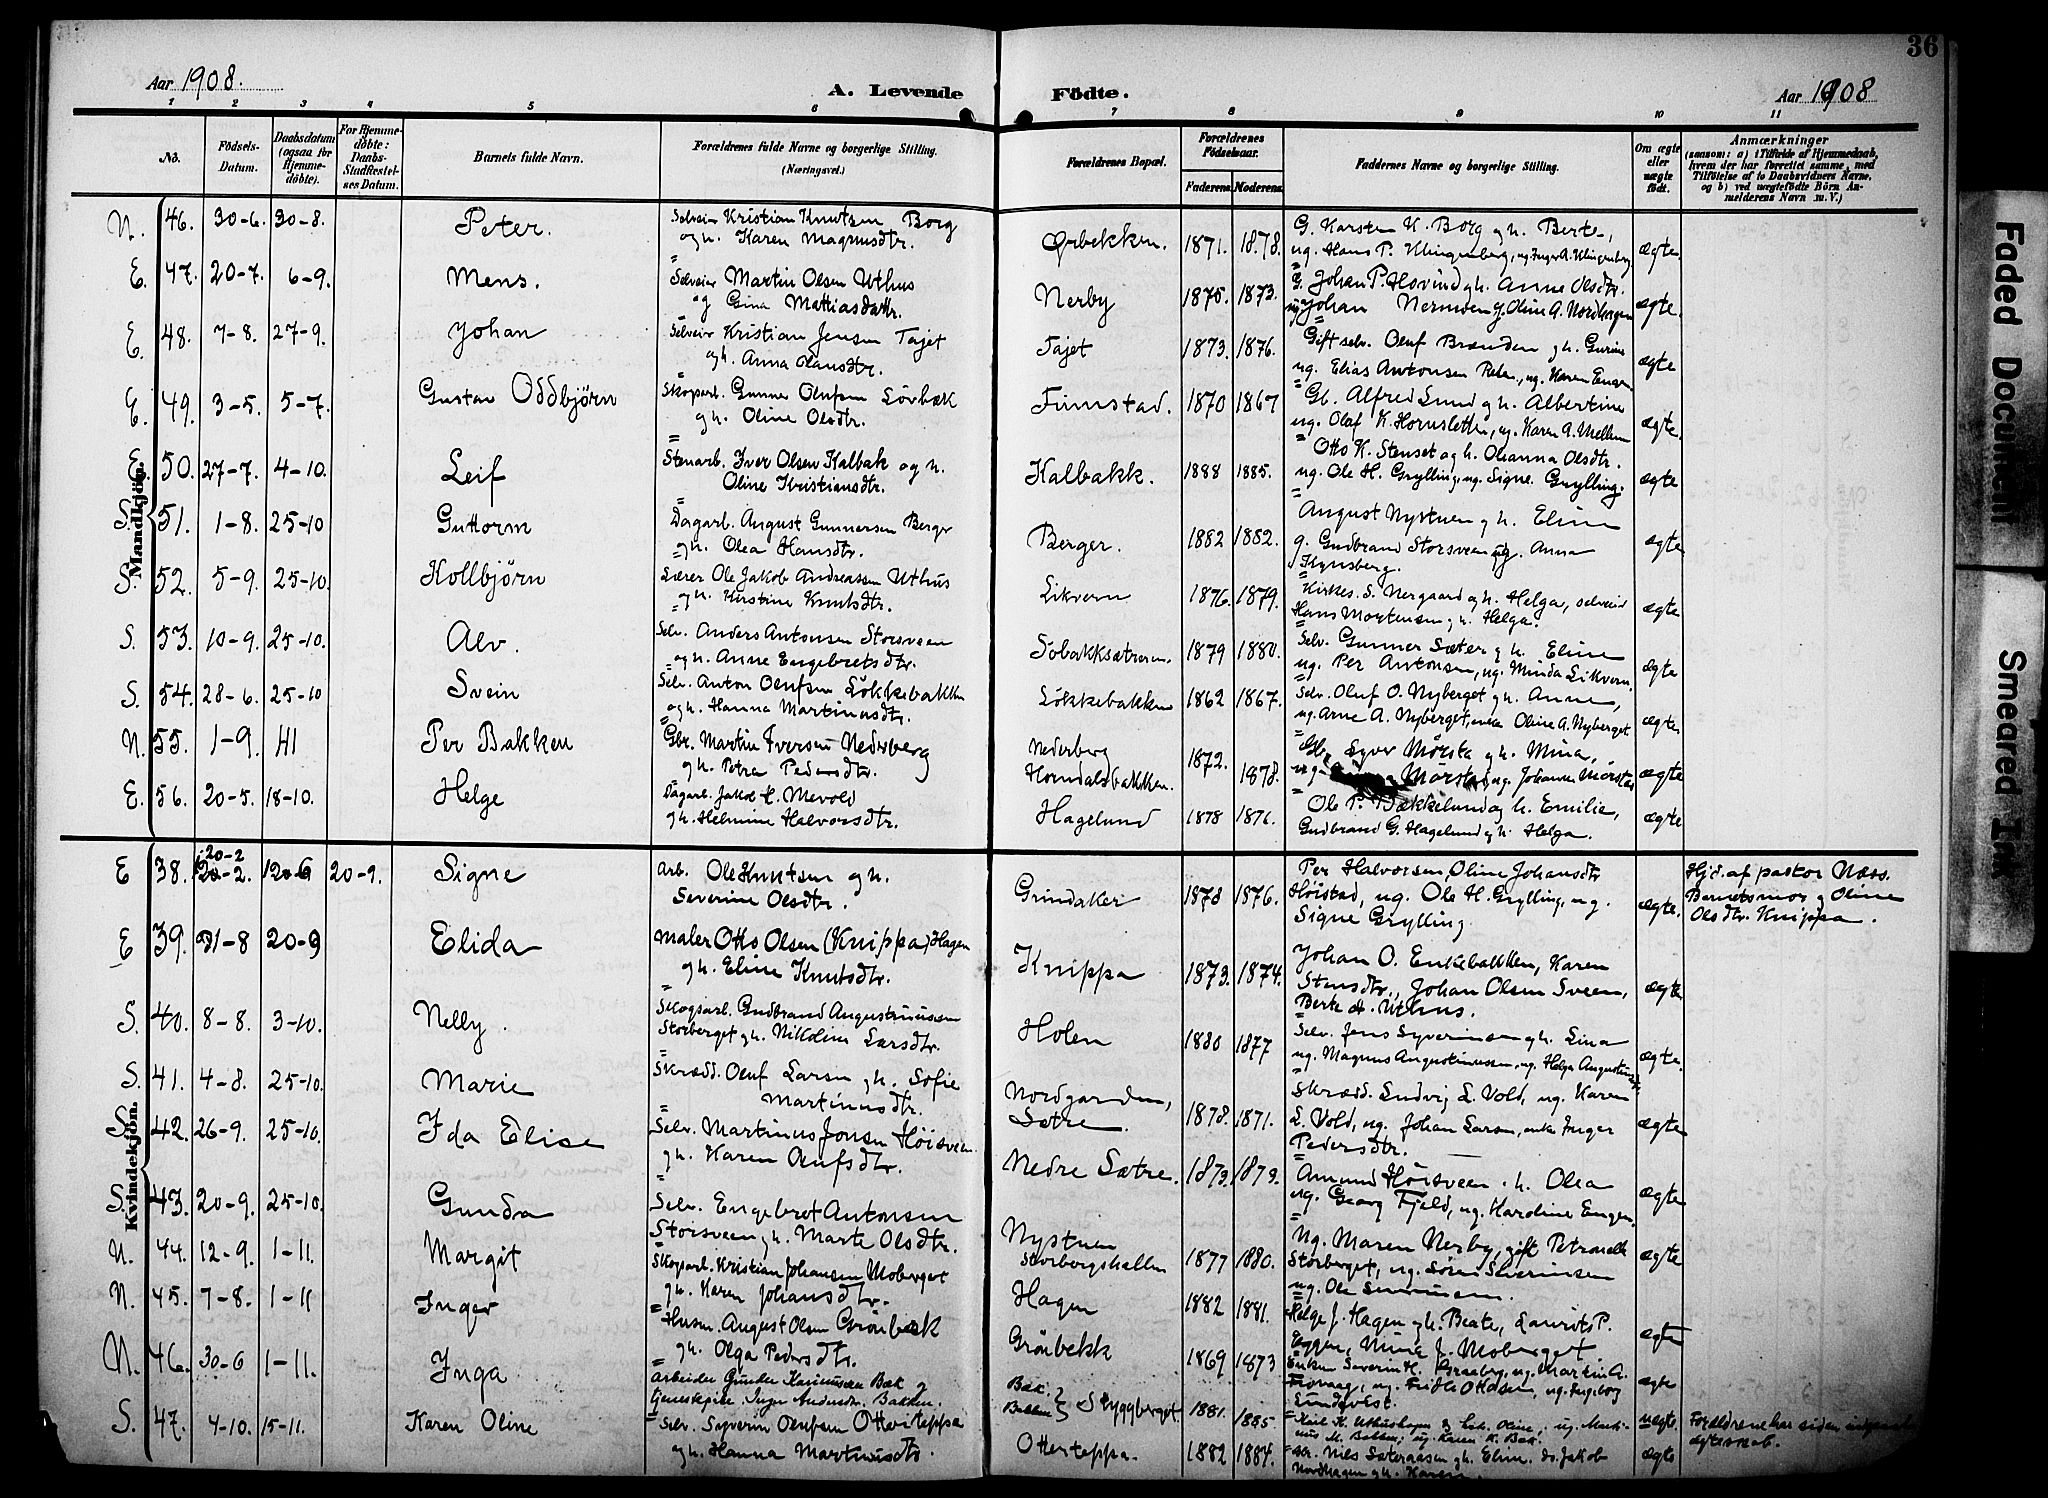 36
Aar 1908.
A. Levende Födte.
Aar 1908
1 2 3 4 5 6 7 8 9 10 11
No.
Födsels-Datum.
Daabsdatum (ogsaa for Hjemme-døbte).
For Hjemme-døbte: Daabs-Stadfæstel-ses Datum.
Barnets fulde Navn.
Forældrenes fulde Navne og borgerlige Stilling. (Næringsvei.)
Forældrenes Bopæl.
Forældrenes Fødselsaar.
Faderens. Moderens.
Faddernes Navne og borgerlige Stilling.
Om ægte eller uægte født.
Anmærkninger
(saasom: a) i Tilfælde af Hjemmedaab, hvem der har forrettet samme, med Tilföielse af to Daabsvidners Navne, og b) ved uægtefödte Börn An-melderens Navn m. V.)
Mandkjön.
N. 46. 30-6. 30-8. Peter. Selveier Kristian Knutsen Borg
og h. Karen Magnusdtr. Ørbekken. 1871. 1878. G. Karsten K. Borg og h. Berte,
ug. Hans P. Klingenberg, ug. Inger A. Klingenberg ægte
E. 47. 20-7. 6-9. Mens. Selveier Martin Olsen Uthus
og Gina Mattiasdatter. Nerby 1875. 1873. G. Johan P. Hovind g h. Anne Olsdtr.
ug Johan Nermoen g. Oline A. Nordhagen ægte.
E. 48. 7-8. 27-9. Johan Selveier Kristian Jensen Tajet
og h. Anna Olausdtr. Tajet 1873. 1876. Gift selv. Oluf Brænden g h. Gurine
ug. Elias Antonsen, ug. Karen Engen ægte
E. 49. 3-5. 5-7. Gustav Oddbjörn Skogsarb. Gunner Olufsen Lövbæk
og h. Oline Olsdtr. Finnstad. 1870 1867 Gb. Alfred Lund g h. Albertine
ug. Olaf K. Hornsletten, ug. Karen A. Mellum ægte.
E. 50. 27-7. 4-10. Leif Stenarb. Iver Olsen Kalbak og h.
Oline Kristiansdtr. Kalbakk. 1888 1885. Otto K. Stenset og h. Olianna Olsdtr.
ug. Ole H. Grylling, ug. Signe Grylling. ægte
S. 51. 1-8. 25-10 Guttorm Dagarb. August Gunnersen Berger
g h. Olea Hansdtr. Berger. 1882 1882. August Nystuen g h. Eline
g. Gudbrand Storsveen og g. Anna
Kynsberg. ægte
S. 52. 5-9. 25-10. Kollbjörn Lærer Ole Jakob Andreassen Uthus
g h. Kirstine Knutsdtr. Likvern 1876. 1879. Kirkes. S. Nergaard og h. Helga, selveier
Hans Mortensen g h. Helga. ægte
S. 53. 10-9. 25-10. Alv. Selv. Anders Antonsen Storsveen
og h. Anne Engebretsdtr. Sobakksætreren. 1879 1880. Selv. Gunner Sæter g h. Eline
ug. Per Antonsen, ug. Minda Likvern. ægte
S. 54. 28-6. 25-10 Svein Selv. Anton Olufsen Lökkebakken
og h. Hanna Martinusdtr. Lökkebakken 1862 1867. Selv. Oluf O. Nyberget g h. Anne,
ug. Arne A. Nyberget, enke Oline A. Nyberget ægte.
N. 55. 1-9. Per Bakken Gbr. Martin Iversen Nederberg
g h. Petra Pedersdtr. Nederberg
Horndalsbakken. 1872. 1878. Gb. Syver Mörsta g h. Mina,
ug. Mörstad, ug. Johanne Mörstad ægte
E. 56. 20-5. 18-10. Helge Dagarb. Jakob H. Mevold
g h. Helmine Halvorsdtr. Hagelund 1878 1876. Ole P. Bækkelund og h. Emilie,
Gudbrand G. Hagelund g h. Helga. ægte
Kvindekjön.
E 38. 20-2 20-2. 20-6 20-9. Signe Arb. Ole Knutsen og h.
Severine Olsdtr. Grindaker 1878 1876. Per Halvorsen, Oline Johansdtr
Höistad, ug. Ole H. Grylling, ug.
Signe Grylling ægte. Hjd. af pastor Næss.
Barnets mor g Oline
Olsdtr. Knippa.
E 39. 31-8 20-9 Elida Maler Otto Olsen (Knippa) Hagen
g h. Eline Knutsdtr. Knippa 1873. 1874. Johan O. Enkebakken, Karen
Stensdtr., Johan Olsen Sveen,
Berte H. Uthus. ægte
S. 40. 8-8. 3-10. Nelly. Skogsarb. Gudbrand Augustinussen
Storberget g h. Nikoline Larsdtr. Holen 1880 1877 Selv. Jens Syverinsen g h. Lina
ug. Magnus Augustinussen, ug. Helga Augustinus ægte.
S. 41. 4-8. 25-10. Marie Skrædd. Oluf Larsen g h. Sofie
Martinusdtr. Nordgarden,
Sætre. 1878. 1871. Skrædd. Ludvig L. Vold, ug. Karen
L. Vold, ug. Johan Larsen, enke Inger
Pedersdtr. ægte
S. 42. 26-9. 25-10. Ida Elise Selv. Martinus Jonsen Höisveen
g h. Karen Olufsdtr. Nedre Sætre. 1873. 1879. Amund Höisveen. h. Olea
ug. Georg Fjeld, ug. Karoline Engen. ægte
S. 43. 20-9. 25-10. Gunda Selv. Engebret Antonsen
Storsveen g h. Marte Olsdtr. Nystuen
Storbergshallen 1877 1880. Ug. Maren Nerby, gift Petronelle
Storberget, ug. Sören Severinsen
ug. Ole Severinsen. ægte
N. 44. 12-9. 1-11. Margit Skogsarb. Kristian Johansen Moberget
g h. Karen Johansdtr. Hagen 1882 1881. Helge J. Hagen g h. Beate, Laurits P.
Eggen, Mina J. Moberget. ægte
N. 45. 7-8. 1-11 Inger Husm. August Olsen Grönbæk
g h. Olga Pedersdtr. Grönbekk 1869 1873 Enken Severin H. Graaberg, ug. Martin A.
ug. Fridle Ottosen, ug. Ingeborg
Lundqvist. ægte
N. 46. 30-6 1-11. Inga Arbeider Gunder Karinussen Bæk g
Tjenestepike Inga Andersdtr. Bakken. Bæk
Bakken } Styggberget. 1881. 1885 Emil K. Uthushagen g h. Oline, ug. Mart-
inus M. Bakken, ug. Karen K. Bæk. uægte Forældrene har siden indgaaet
ægteskab.
S. 47. 4-10. 15-11. Karen Oline Selv. Syverin Olufsen Otterteppa
og h. Hanna Martinusdtr. Otterteppa. 1882 1884. Nils Sæteraasen g h. Eline. do. Jakob
Nordhagen g h. Karen. ægte
Faded Document
Smeared Ink